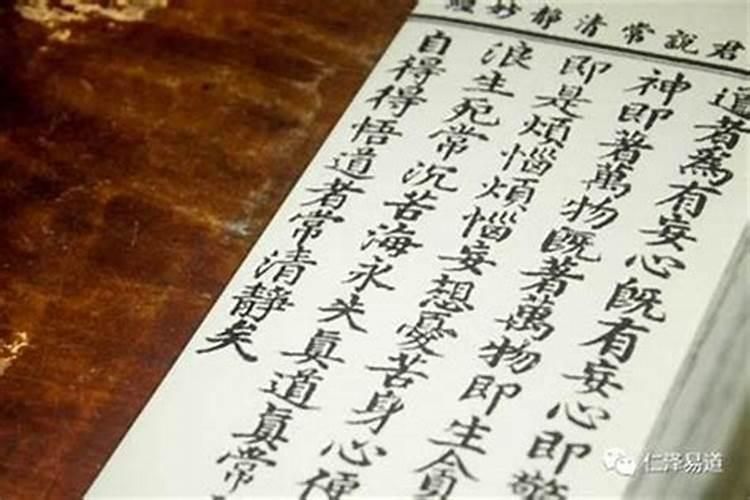 君說常清靜妙經
道者為有妄心既有妄心即驚
神即著萬物既著萬物即生貪
即是煩惱煩惱妄想憂苦身心便
浪生死常沉苦海永失真道真常
自得得悟道者常清靜矣
仁泽易道